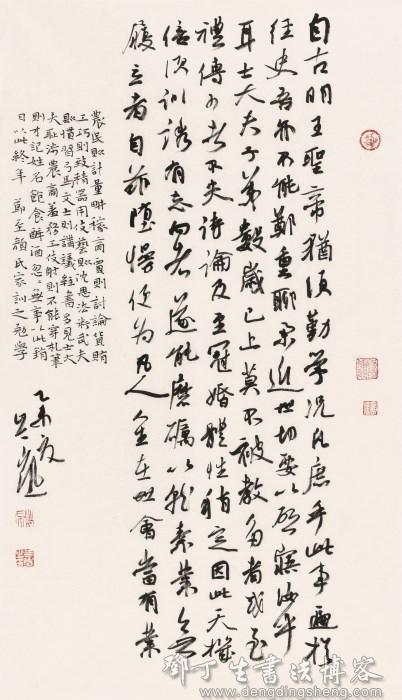 自古明王聖帝猶須勤學況凡庶乎此事遍於
經史吾亦不能鄭重聊舉近世切要以啟寤汝
耳士大夫子弟數歲已上莫不被教多者或至
禮傳少者不失詩論及至冠婚體性稍定因此天機
倍須訓誘有志向者遂能磨礪以就素業無
履立者自茲墮慢便為凡人人生在世會當有業
農民則計量耕稼商賈則討論貨賄
工巧則致精器用伎藝則沈思法術武夫
則慣習弓馬文士則講議經書多見士大
夫恥涉農商羞務工伎射則不能穿札筆
則才記姓名飽食醉酒忽忽無事以此銷
日以此終年 顏氏家訓之勉學
乙未夏
鄧丁生書法博客
www.dengdingsheng.com